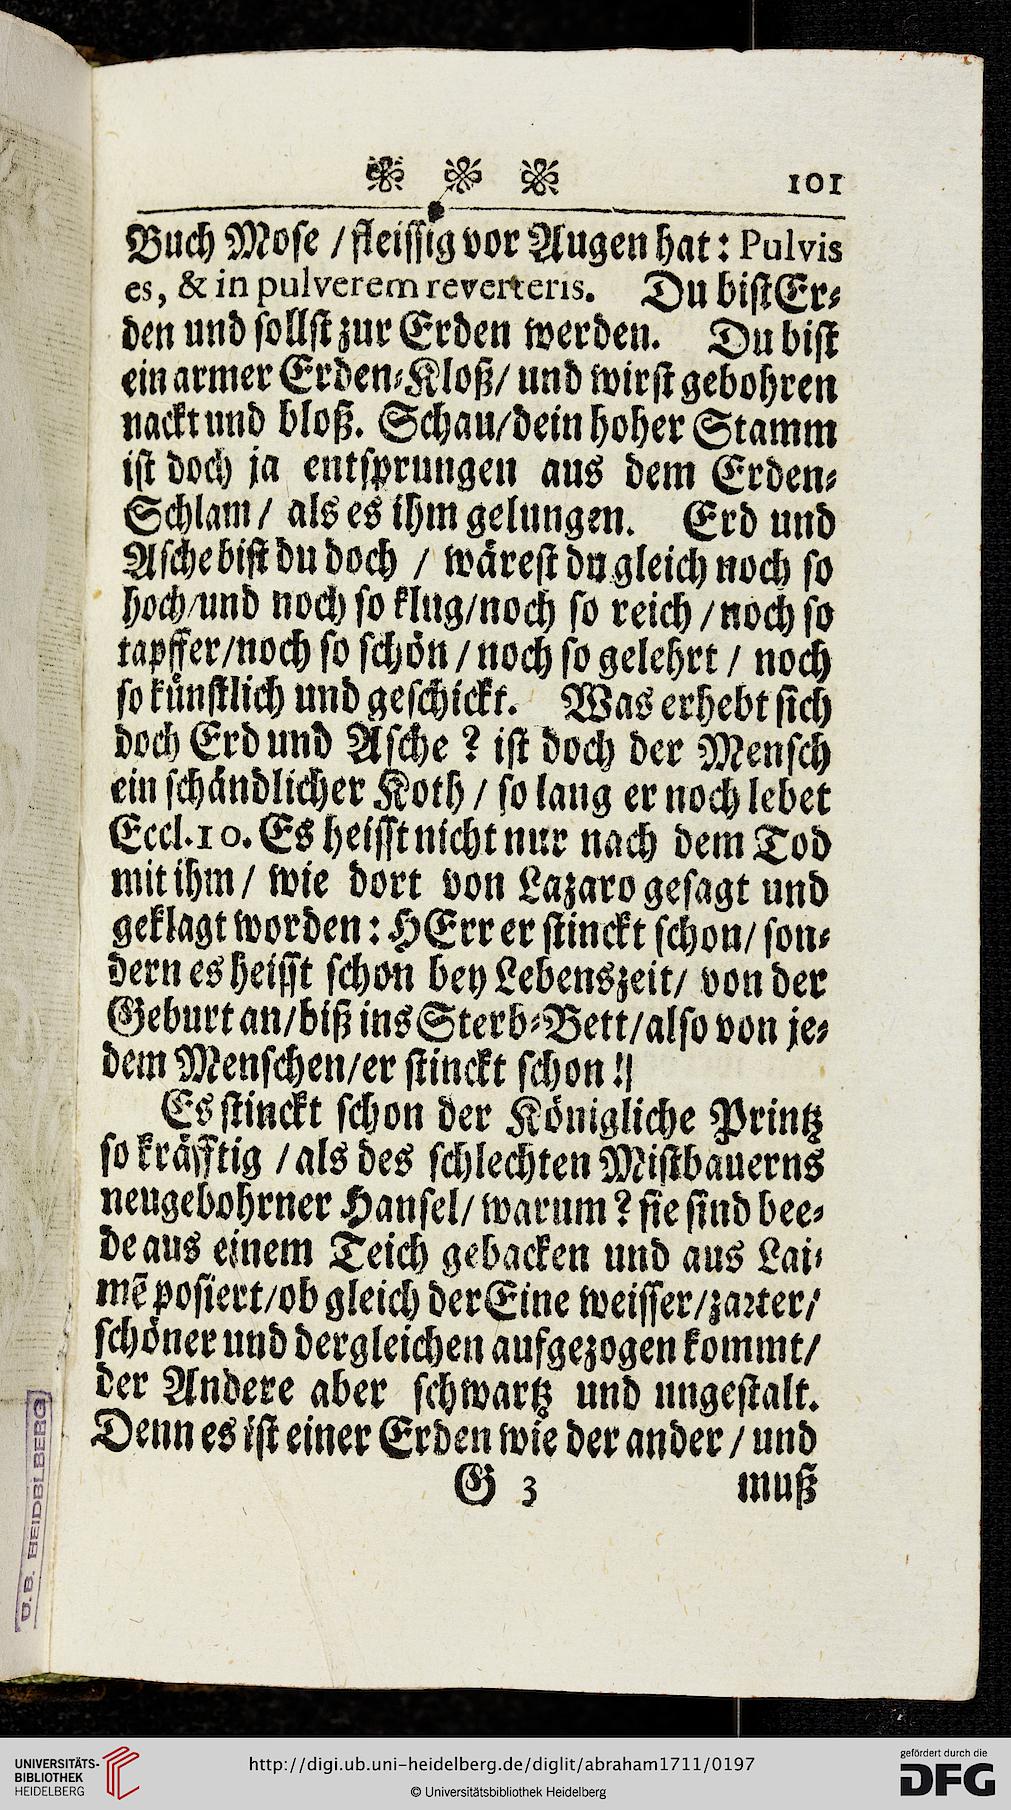 101
Buch Mose / fleissig vor Augen hat: Pulvis
es, & in pulverem reverteris. Du bist Er⸗
den und sollst zur Erden werden. Du bist
ein armer Erden⸗Kloß/ und wirst gebohren
nackt und bloß. Schau/dein hoher Stamm
ist doch ja entsprungen aus dem Erden⸗
Schlam / als es ihm gelungen. Erd und
Asche bist du doch / wärest du gleich noch so
hoch/und noch so klug/noch so reich / noch so
tapffer/noch so schön / noch so gelehrt / noch
so künstlich und geschickt. Was erhebt sich
doch Erd und Asche ? ist doch der Mensch
ein schändlicher Koth / so lang er noch lebet
Eccl.10. Es heisst nicht nur nach dem Tod
mit ihm / wie dort von Lazaro gesagt und
geklagt worden: HErr er stinckt schon/ son⸗
dern es heisst schon bey Lebenszeit/ von der
Geburt an/biß ins Sterb⸗Bett/also von je⸗
dem Menschen/er stinckt schon!|
Es stinckt schon der Königliche Printz
so kräfftig / als des schlechten Mistbauerns
neugebohrner Hansel/ warum? sie sind bee⸗
de aus einem Teich gebacken und aus Lai⸗
mẽ posiert/ob gleich der Eine weisser/zarter/
schöner und dergleichen aufgezogen kommt/
der Andere aber schwartz und ungestalt.
Denn es ist einer Erden wie der ander / und
G 3 muß
U.B. HEIDELBERG
UNIVERSITÄTS-
BIBLIOTHEK
HEIDELBERG
http://digi.ub.uni-heidelberg.de/diglit/abraham1711/0197
© Universitätsbibliothek Heidelberg
gefördert durch die
DFG